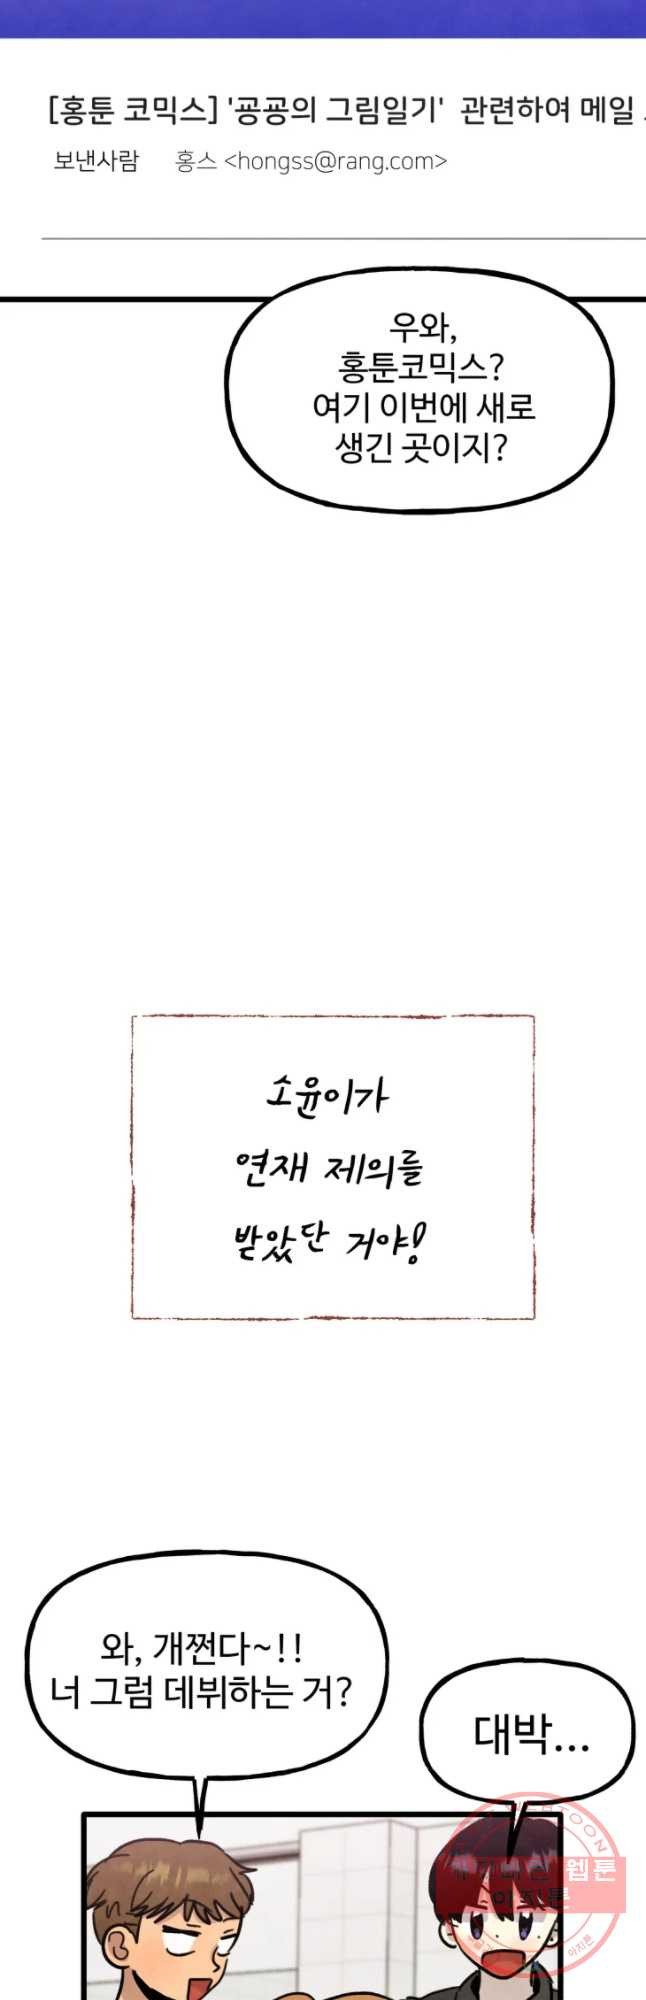 [홍툰 코믹스] '굥굥의 그림일기' 관련하여 메일
보낸사람 홍스 <hongss@rang.com>
우와,
홍툰코믹스?
여기 이번에 새로
생긴 곳이지?
소윤이가
연재 제의를
받았단 거야!
와, 개쩐다~!!
너 그럼 데뷔하는 거?
대박...
웹툰
아지툰
아지툰